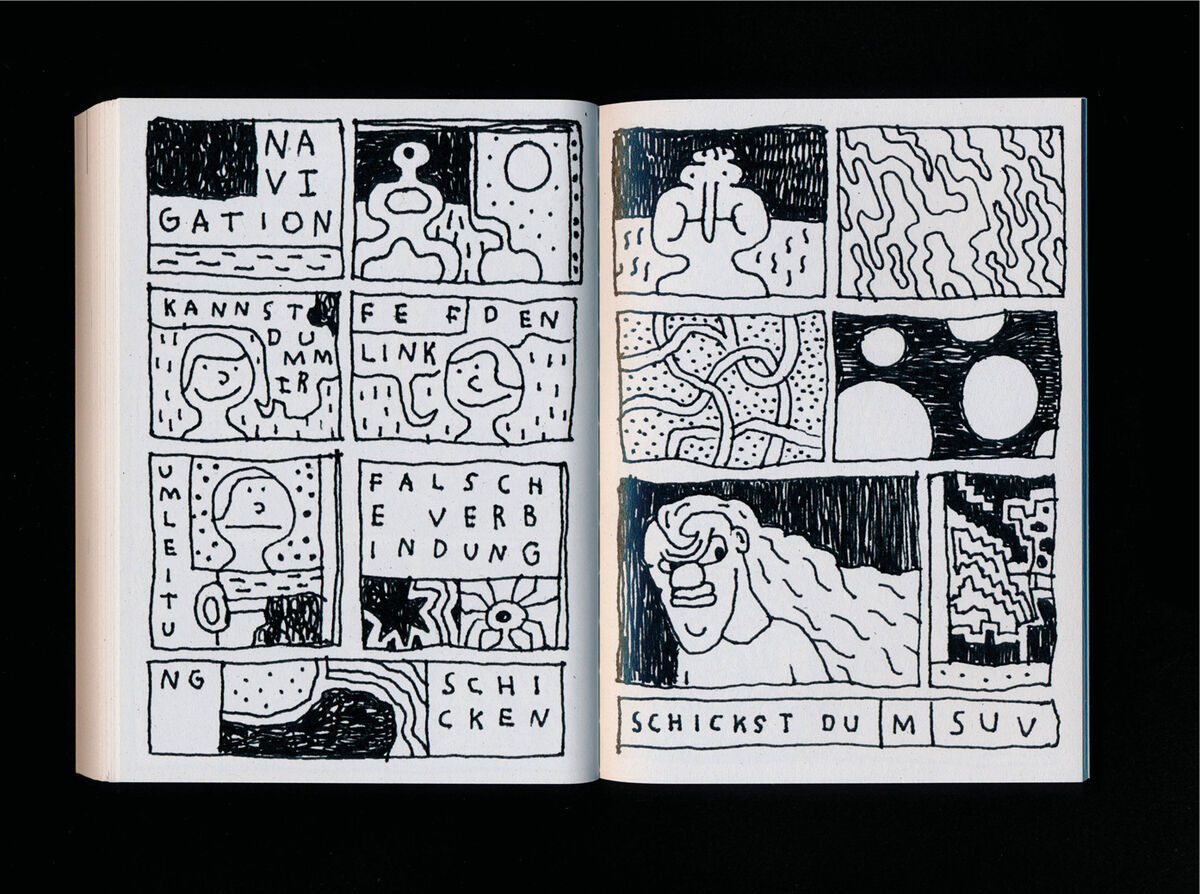 NA
VI
GATION
KANNST
DU
MM
IR
FEF DEN
LINK
UMLEITU
FALSCH
E VERB
INDUNG
NG
SCHI
CKEN
SCHICKST DU M SUV